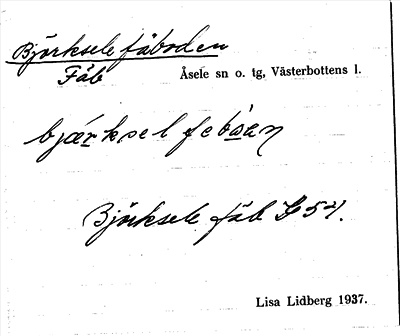 Björksele fäboden
Fäb Åsele sn o. tg, Västerbottens l.
bjærksel febøen
Björksele fäb 54.
Lisa Lidberg 1937.